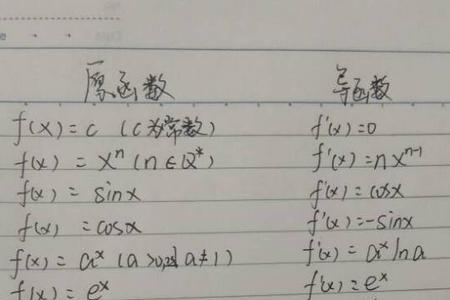 原函数 导函数
f(x)=c (c为常数) f'(x)=0
f(x)=xⁿ(n∈Q*) f'(x)=nxⁿ⁻¹
f(x)=sinx f'(x)=cosx
f(x)=cosx f'(x)=-sinx
f(x)=aˣ(a>0,且a≠1) f'(x)=aˣlna
f(x)=eˣ f'(x)=eˣ